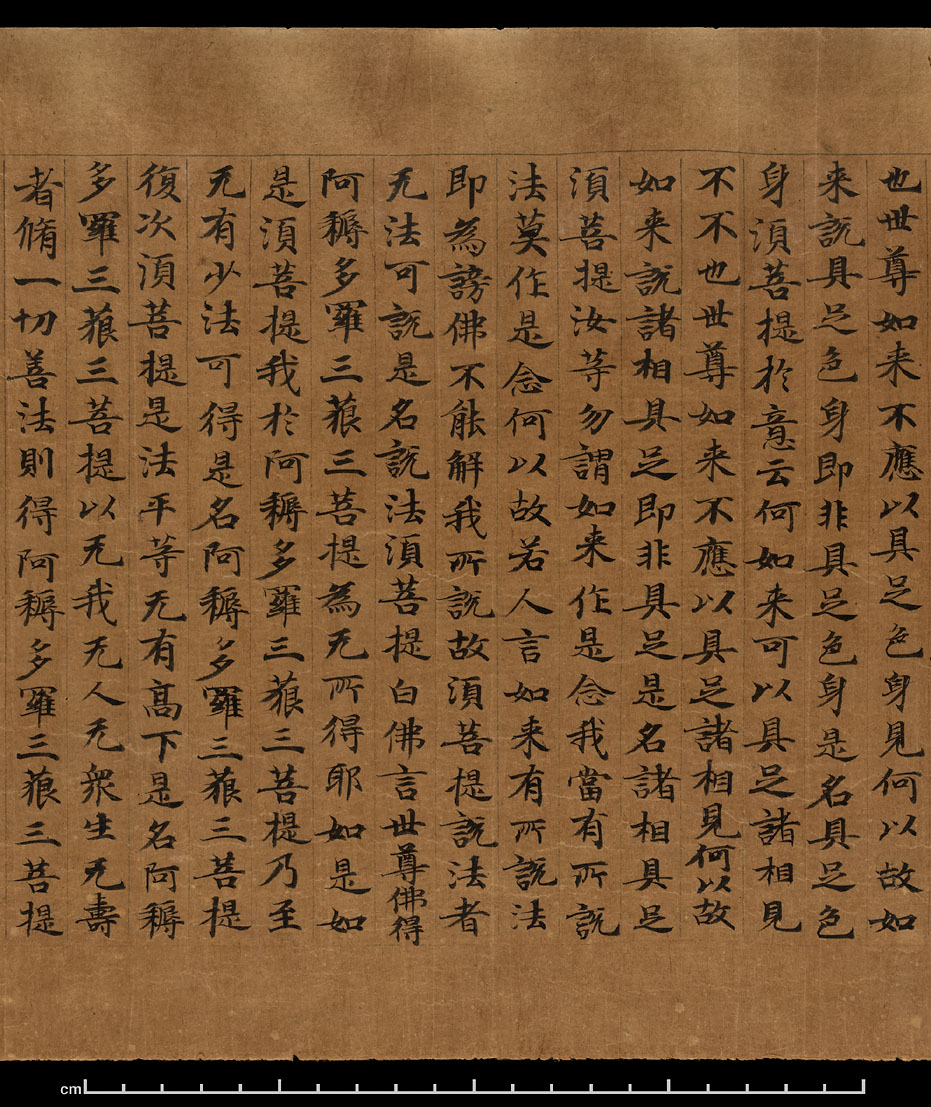 也世尊如来不應以具足色身見何以故如
来說具足色身即非具足色身是名具足色
身湏菩提於意云何如来可以具足諸相見
不不也世尊如来不應以具足諸相見何以故
如来說諸相具足即非具足是名諸相具足
湏菩提汝等勿謂如来作是念我當有所說
法莫作是念何以故若人言如来有所說法
即為謗佛不能解我所說故湏菩提說法者
无法可說是名說法湏菩提白佛言世尊佛得
阿耨多羅三藐三菩提為无所得耶如是如
是湏菩提我於阿耨多羅三藐三菩提乃至
无有少法可得是名阿耨多羅三藐三菩提
復次湏菩提是法平等无有高下是名阿耨
多羅三藐三菩提以无我无人无衆生无壽
者脩一切善法則得阿耨多羅三藐三菩提
cm